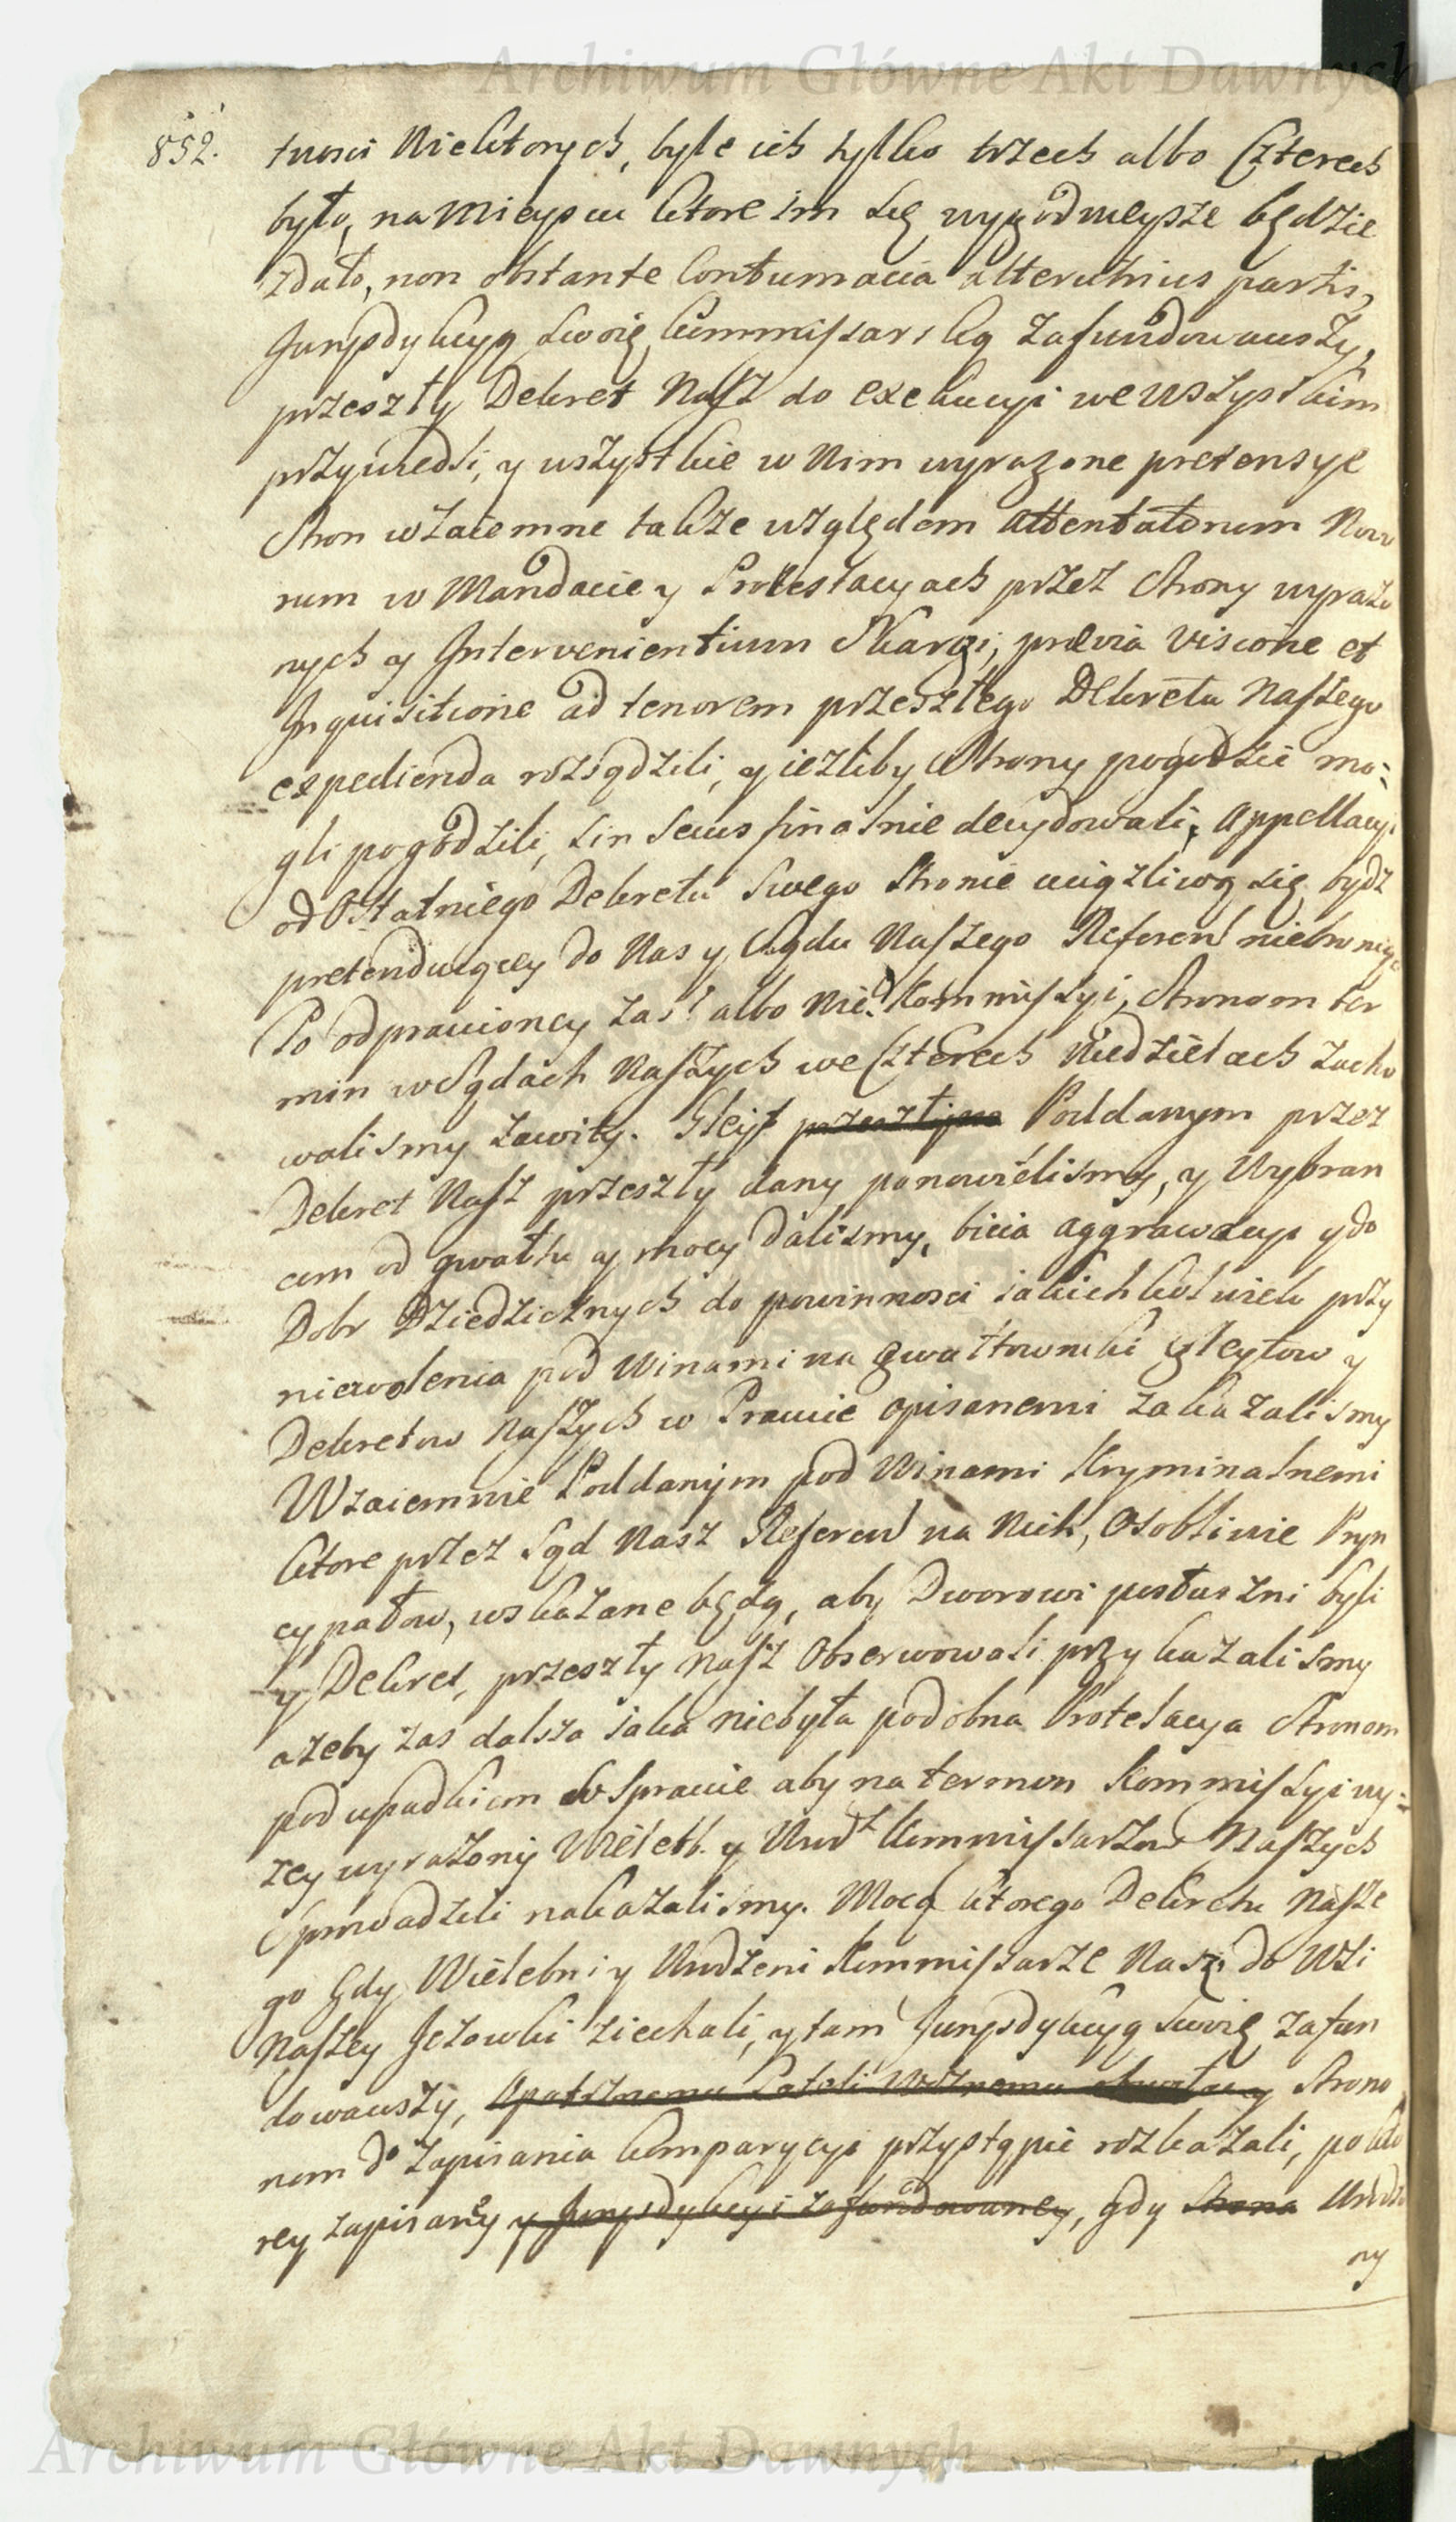 Archiwum Główne Akt Dawnych
852.
tnosci Niektorych, byle ich tylko trzech albo Czterech
było, na Mieyscu ktore im się wygodnieysze będzie
zdało, non obstante Contumacia alterutrius partis,
Jurysdykcyą swoię kommissarską zafundowawszy,
przeszły Dekret Nasz do exekucyi we wszystkim
przywiedli, y wszystkie w Nim wyrazone pretensye
Stron wzaiemne także względem attentatorum Novo
rum w Mandacie y Protestacyach przez Strony wyrażo
nych y Intervenientium Skargi, prævia Visione et
Inquisitione ad tenorem przeszłego Dekretu Naszego
expedienda rozsądzili, y ieżliby Strony pogodzić mo:
gli pogodzili, sin secus finalnie decydowali, appellacyi
od Ostatniego Dekretu swego Stronie uciążliwą się bydz
pretenduiącey do Nas y Sądu Naszego Referen niebroniąc
Po odprawioney zas albo Nie Kommissyi, Stronom ter
min w Sądach Naszych we Czterech Niedzielach zacho
walismy zawity. Gleyt przeszłym Poddanym przez
Dekret Nasz przeszły dany ponowiélismy, y Wybran
com od gwałtu y mocy dalismy, bicia aggrawacyi y do
Dobr Dziedzicznych do powinnosci iakichkolwiek przy
niewolenia pod Winami na gwałtowniki Gleytow y
Dekretow Naszych w Prawie opisanemi zakazalismy
Wzaiemnie Poddanym pod Winami Kryminalnemi
ktore przez Sąd Nasz Referen na Nich, Osobliwie Pryn
cypałow, wskazane będą, aby Dworowi posłuszni byli
y Dekret, przeszły Nasz Obserwowali przykazalismy
azeby zas dalsza iaka niebyła podobna Protelacya Stronom
pod upadkiem w Sprawie aby na termin Kommissyi wy:
zey wyrażony Wieleb. y Urodz Kommissarzow Naszych
Sprowadzili nakazalismy. Mocą ktorego Dekretu Nasze
go Gdy Wielebni y Urodzeni Kommissarze Nasi do Wsi
Naszey Jeżowki ziechali, y tam Jurysdykcyą swoię zafun
dowawszy, Opatrznemu Woznemu obwołacz Strono
nom do Zapisania komparycyi przystąpić rozkazali, po kto
rey zapisaney y Jurysdykcyi zafundowaney, Gdy Strona Urodzo
ny
Archiwum Główne Akt Dawnych